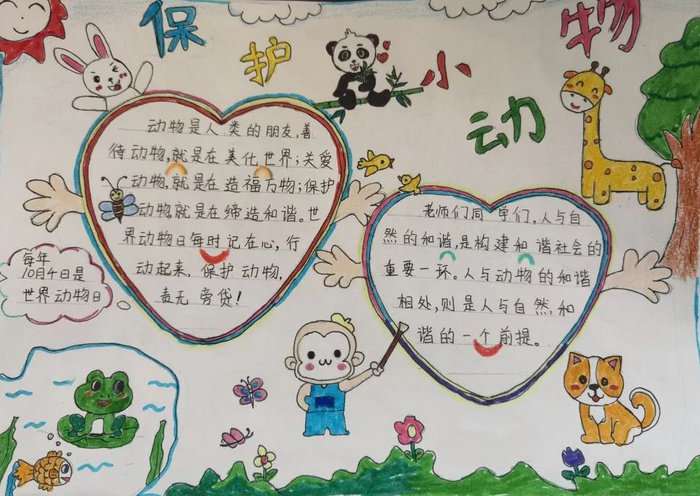 保护小动物
动物是人类的朋友,善
待动物,就是在美化世界;关爱
动物,就是在造福万物;保护
动物就是在缔造和谐。世
界动物日每时记在心,行
动起来,保护动物,
责无旁贷!
每年
10月4日是
世界动物日
老师们同学们,人与自
然的和谐,是构建和谐社会的
重要一环。人与动物的和谐
相处,则是人与自然,和
谐的一个前提。